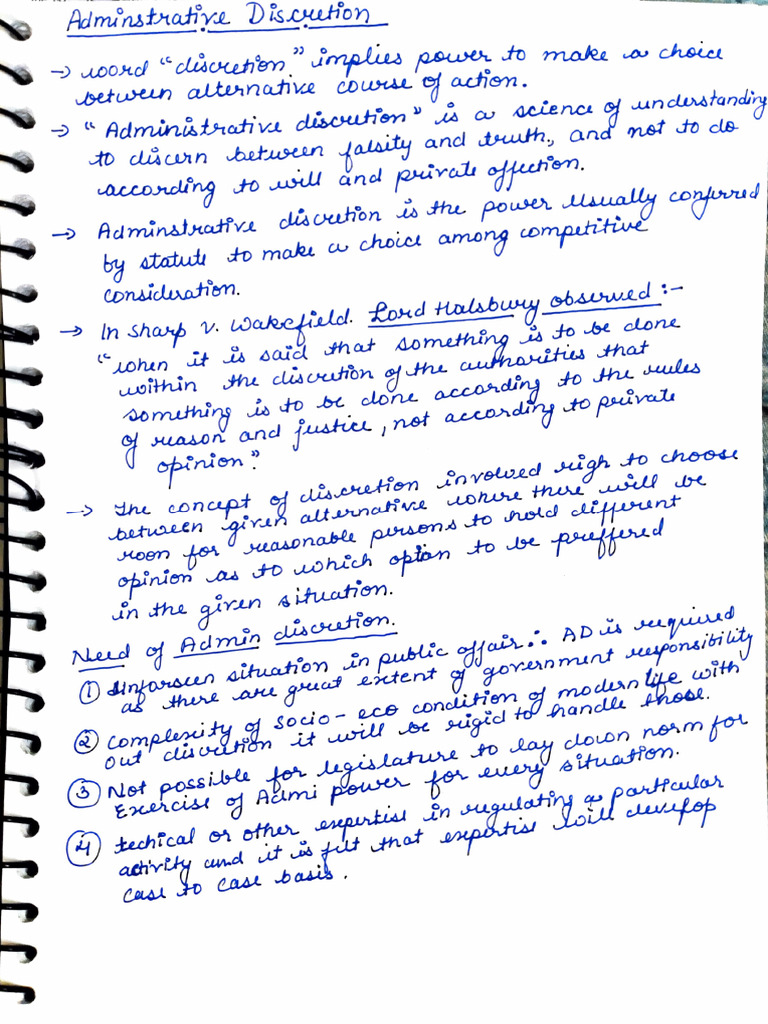 Adminstrative Discretion
→ word "discretion" implies power to make a choice
between alternative course of action.
→ "Administrative discretion" is a science of understanding
to discern between falsity and truth, and not to do
according to will and private affection.
→ Adminstrative discretion is the power usually conferred
by statute to make a choice among competitive
consideration.
→ In Sharp v. Wakefield. Lord Halsbury observed :-
"when it is said that something is to be done
within the discretion of the authorities that
something is to be done according to the rules
of reason and justice, not according to private
opinion".
→ The concept of discretion involved righ to choose
between given alternative where there will be
room for reasonable persons to hold different
opinion as to which option to be preffered
in the given situation.
Need of Admin discretion.
① Unforseen situation in public affair ∴ AD is required
as there are great extent of government responsibility
② Complexity of socio-eco condition of modern life with
out discretion it will be rigid to handle those.
③ Not possible for legislature to lay down norm for
Exercise of Admi power for every situation.
④ techical or other expertise in regulating a particular
activity and it is felt that expertise will develop
case to case basis.